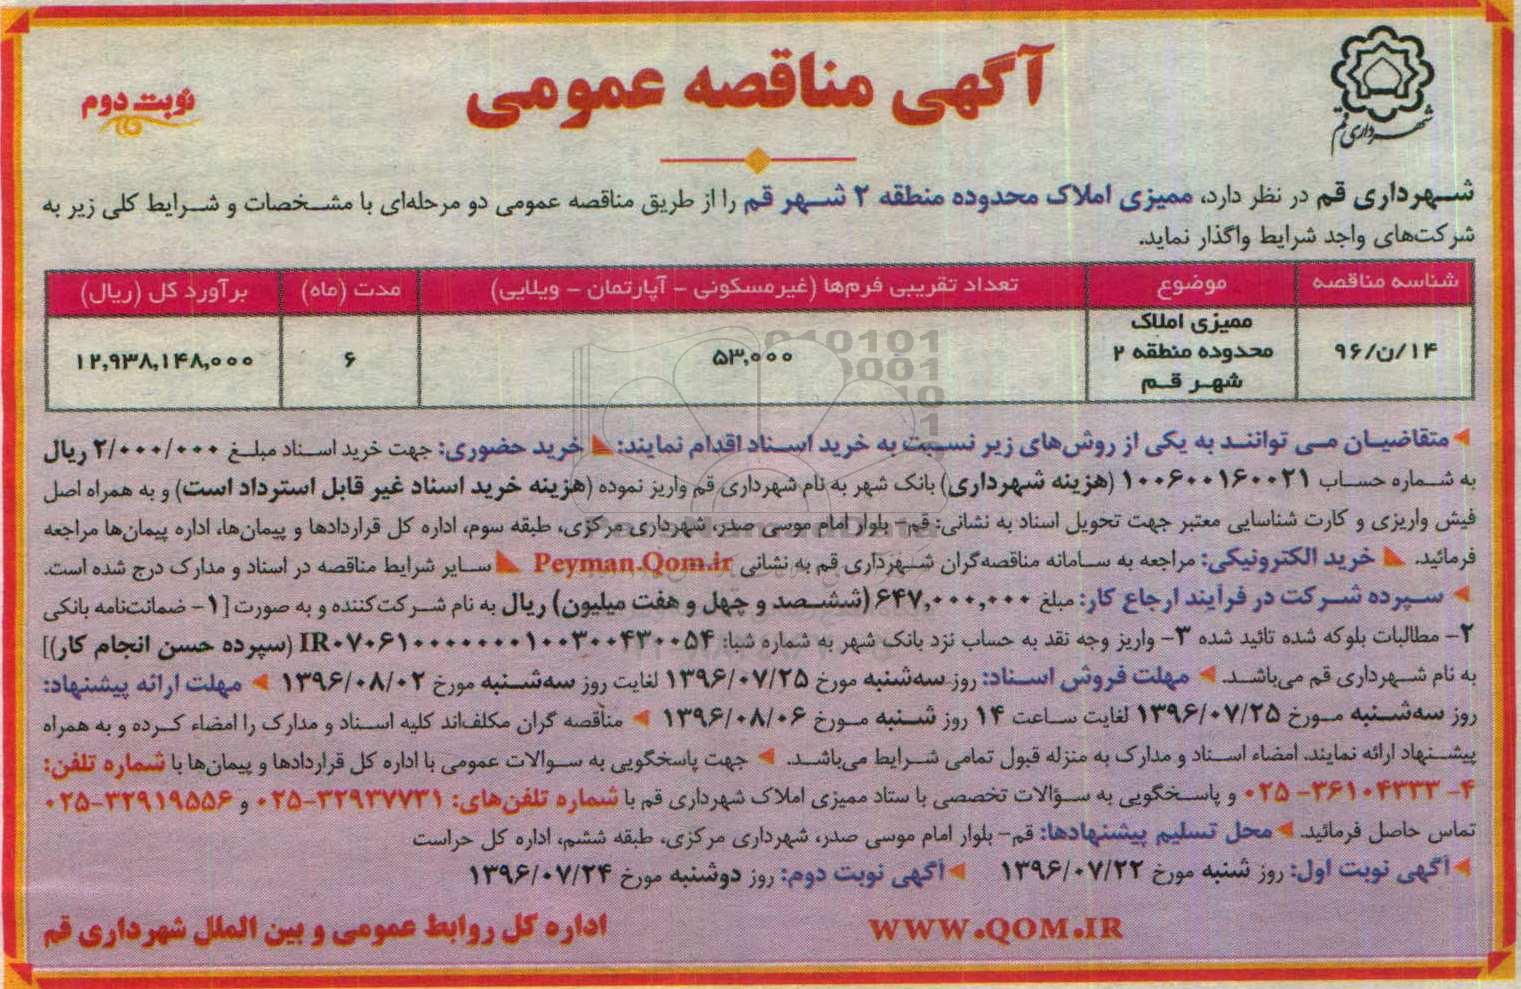 شهرداری قم
آگهی مناقصه عمومی
نوبت دوم
شهرداری قم در نظر دارد، ممیزی املاک محدوده منطقه ۲ شهر قم را از طریق مناقصه عمومی دو مرحله‌ای با مشخصات و شرایط کلی زیر به
شرکت‌های واجد شرایط واگذار نماید.
شناسه مناقصه	موضوع	تعداد تقریبی فرم‌ها (غیرمسکونی - آپارتمان - ویلایی)	مدت (ماه)	برآورد کل (ریال)
۱۴/ن/۹۶	ممیزی املاک محدوده منطقه ۲ شهر قم	۵۳,۰۰۰	۶	۱۲,۹۳۸,۱۴۸,۰۰۰
متقاضیان می توانند به یکی از روش‌های زیر نسبت به خرید اسناد اقدام نمایند: خرید حضوری: جهت خرید اسناد مبلغ ۲/۰۰۰/۰۰۰ ریال
به شماره حساب ۱۰۰۶۰۰۱۶۰۰۲۱ (هزینه شهرداری) بانک شهر به نام شهرداری قم واریز نموده (هزینه خرید اسناد غیر قابل استرداد است) و به همراه اصل
فیش واریزی و کارت شناسایی معتبر جهت تحویل اسناد به نشانی: قم- بلوار امام موسی صدر، شهرداری مرکزی، طبقه سوم، اداره کل قراردادها و پیمان‌ها، اداره پیمان‌ها مراجعه
فرمائید. خرید الکترونیکی: مراجعه به سامانه مناقصه‌گران شهرداری قم به نشانی Peyman.Qom.ir سایر شرایط مناقصه در اسناد و مدارک درج شده است.
سپرده شرکت در فرآیند ارجاع کار: مبلغ ۶۴۷,۰۰۰,۰۰۰ (ششصد و چهل و هفت میلیون) ریال به نام شرکت‌کننده و به صورت [۱- ضمانت‌نامه بانکی
۲- مطالبات بلوکه شده تائید شده ۳- واریز وجه نقد به حساب نزد بانک شهر به شماره شبا: IR۰۷۰۶۱۰۰۰۰۰۰۰۰۱۰۰۳۰۰۴۳۰۰۵۴ (سپرده حسن انجام کار)]
به نام شهرداری قم می‌باشد. مهلت فروش اسناد: روز سه‌شنبه مورخ ۱۳۹۶/۰۷/۲۵ لغایت روز سه‌شنبه مورخ ۱۳۹۶/۰۸/۰۲ مهلت ارائه پیشنهاد:
روز سه‌شنبه مورخ ۱۳۹۶/۰۷/۲۵ لغایت ساعت ۱۴ روز شنبه مورخ ۱۳۹۶/۰۸/۰۶ مناقصه گران مکلف‌اند کلیه اسناد و مدارک را امضاء کرده و به همراه
پیشنهاد ارائه نمایند. امضاء اسناد و مدارک به منزله قبول تمامی شرایط می‌باشد. جهت پاسخگویی به سوالات عمومی با اداره کل قراردادها و پیمان‌ها با شماره تلفن:
۴- ۳۶۱۰۴۳۳۳-۰۲۵ و پاسخگویی به سؤالات تخصصی با ستاد ممیزی املاک شهرداری قم با شماره تلفن‌های: ۳۲۹۳۷۷۳۱-۰۲۵ و ۳۲۹۱۹۵۵۶-۰۲۵
تماس حاصل فرمائید. محل تسلیم پیشنهادها: قم- بلوار امام موسی صدر، شهرداری مرکزی، طبقه ششم، اداره کل حراست
آگهی نوبت اول: روز شنبه مورخ ۱۳۹۶/۰۷/۲۲ آگهی نوبت دوم: روز دوشنبه مورخ ۱۳۹۶/۰۷/۲۴
WWW.QOM.IR
اداره کل روابط عمومی و بین الملل شهرداری قم